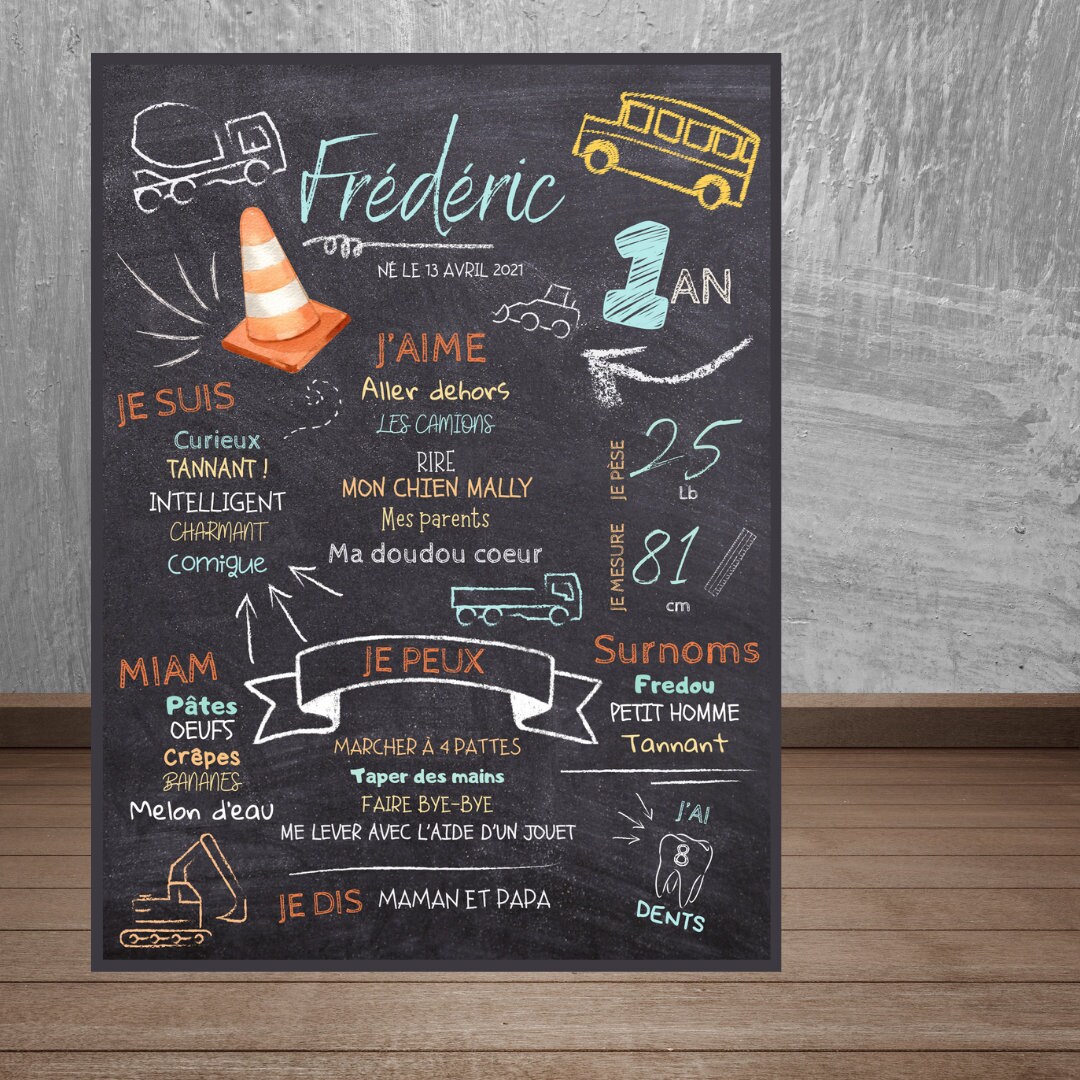 Frédéric
NÉ LE 13 AVRIL 2021
1 AN
J'AIME
Aller dehors
LES CAMIONS
RIRE
MON CHIEN MALLY
Mes parents
Ma doudou coeur
JE SUIS
Curieux
TANNANT !
INTELLIGENT
CHARMANT
Comique
JE PÈSE
25
Lb
JE MESURE
81
cm
MIAM
Pâtes
OEUFS
Crêpes
BANANES
Melon d'eau
JE PEUX
MARCHER À 4 PATTES
Taper des mains
FAIRE BYE-BYE
ME LEVER AVEC L'AIDE D'UN JOUET
Surnoms
Fredou
PETIT HOMME
Tannant
J'AI
8
DENTS
JE DIS MAMAN ET PAPA